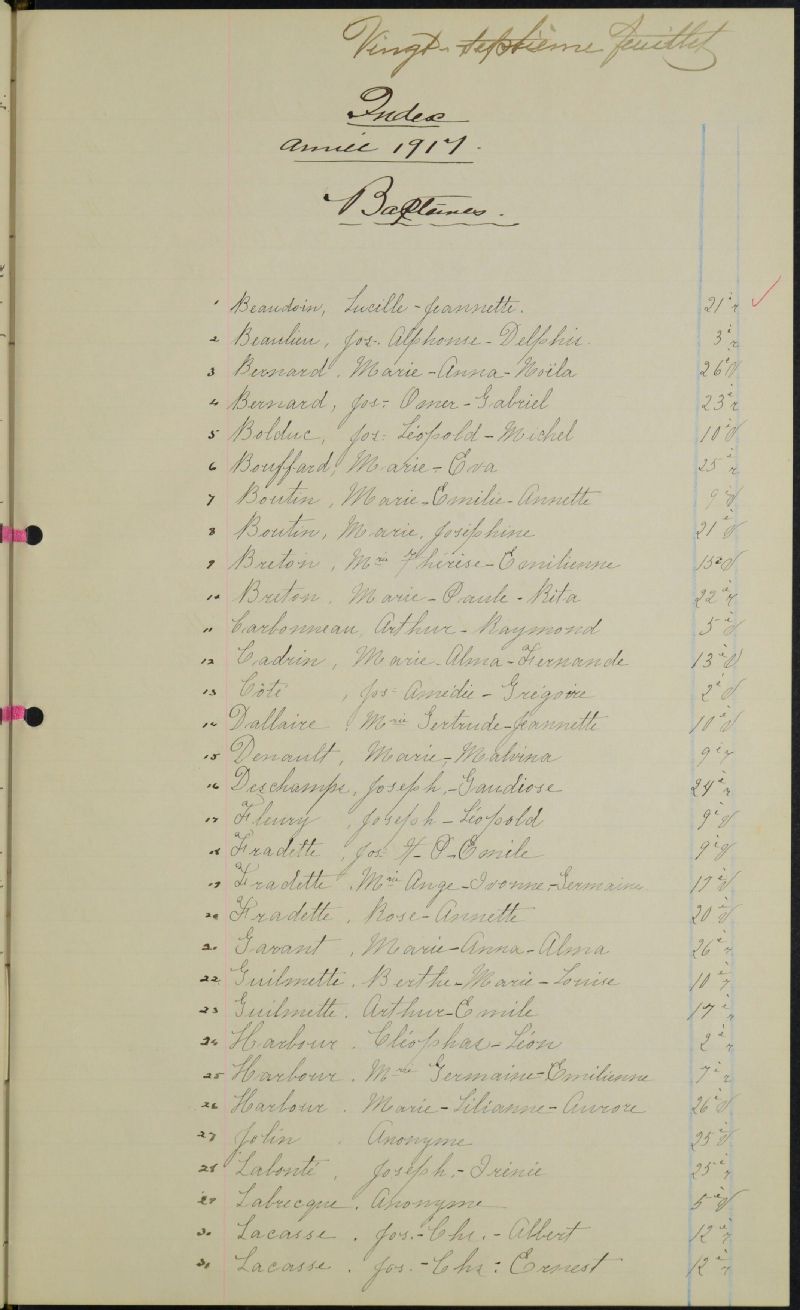 Vingt-septième feuillet
Index
Année 1917.
Baptêmes.
1 Beaudoin, Lucille-Jeannette. 21e r
2 Beaulieu, Jos. Alphonse-Delphis. 3e r
3 Bernard. Marie-Anna-Noëla 26e v
4 Bernard, Jos: Omer-Gabriel 23e r
5 Bolduc, Jos: Léopold-Michel 10e v
6 Bouffard, Marie-Eva 25e r
7 Boutin, Marie-Emilie-Annette 9e v
8 Boutin, Marie. Joséphine 21e v
9 Breton, Mrie Thérèse-Emilienne 15e v
10 Breton. Marie-Paule-Rita 22e r
11 Carbonneau, Arthur-Raymond 5e v
12 Cadrin, Marie-Alma-Fernande 13e v
13 Côté, Jos: Amédée-Grégoire 2e v
14 Dallaire, Mrie Gertrude-Jeannette 10e v
15 Denault, Marie-Malvina 9e r
16 Deschamps, Joseph.-Gaudiose 24e r
17 Fleury, Joseph-Léopold 9e v
18 Fradette, Jos: H-P-Emile 9e v
19 Fradette. Mrie Ange-Ivonne-Germaine 17e v
20 Fradette. Rose-Annette 20e v
21 Garant, Marie-Anna-Alma 26e r
22 Guilmette. Berthe-Marie-Louise 10e r
23 Guilmette. Arthur-Emile 17e r
24 Harbour. Cléophas-Léon 2e r
25 Harbour. Mrie Germaine-Emilienne 7e r
26 Harbour. Marie-Lilianne-Aurore 26e v
27 Jolin. Anonyme 25e v
28 Labonté, Joseph.-Irénée 25e r
29 Labrecque. Anonyme 5e v
30 Lacasse. Jos.-Chs.-Albert 12e r
31 Lacasse. Jos.-Chs: Ernest 12e r